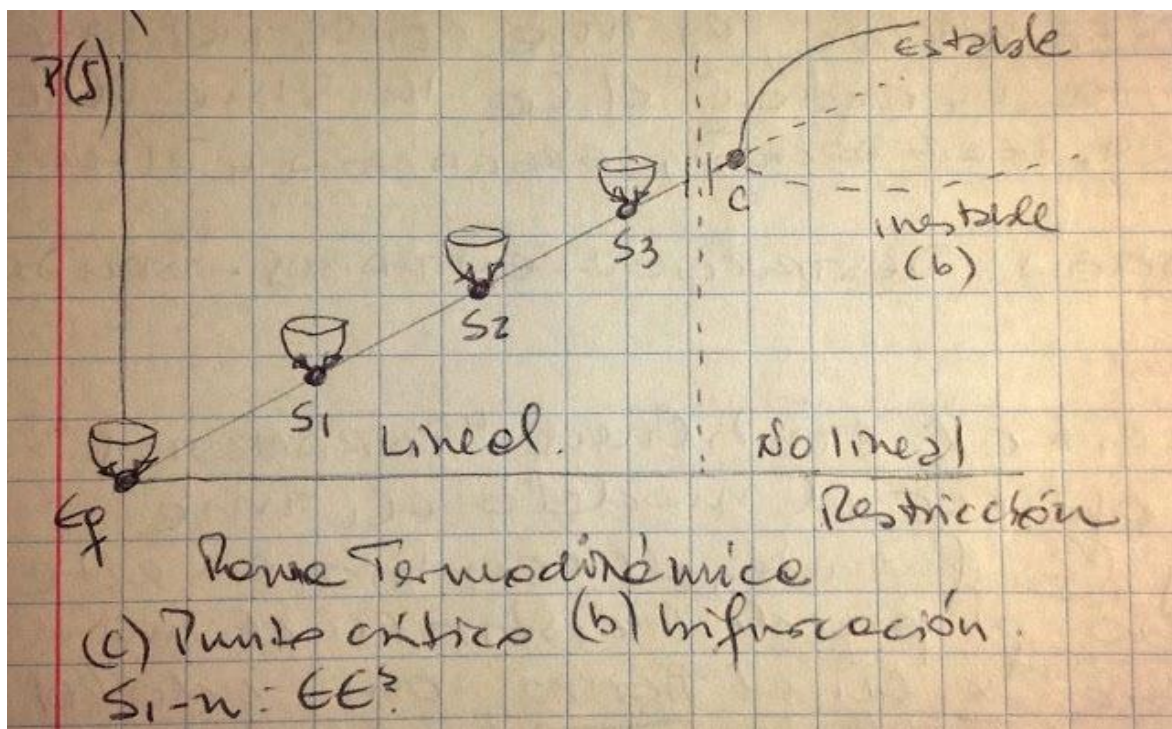 P(S)
Estable
C
inestable
(b)
S3
S2
S1
Lineal.
No lineal
Eq
Restricción
Rama Termodinámica
(c) Punto crítico (b) bifurcación.
S1-n: EE?